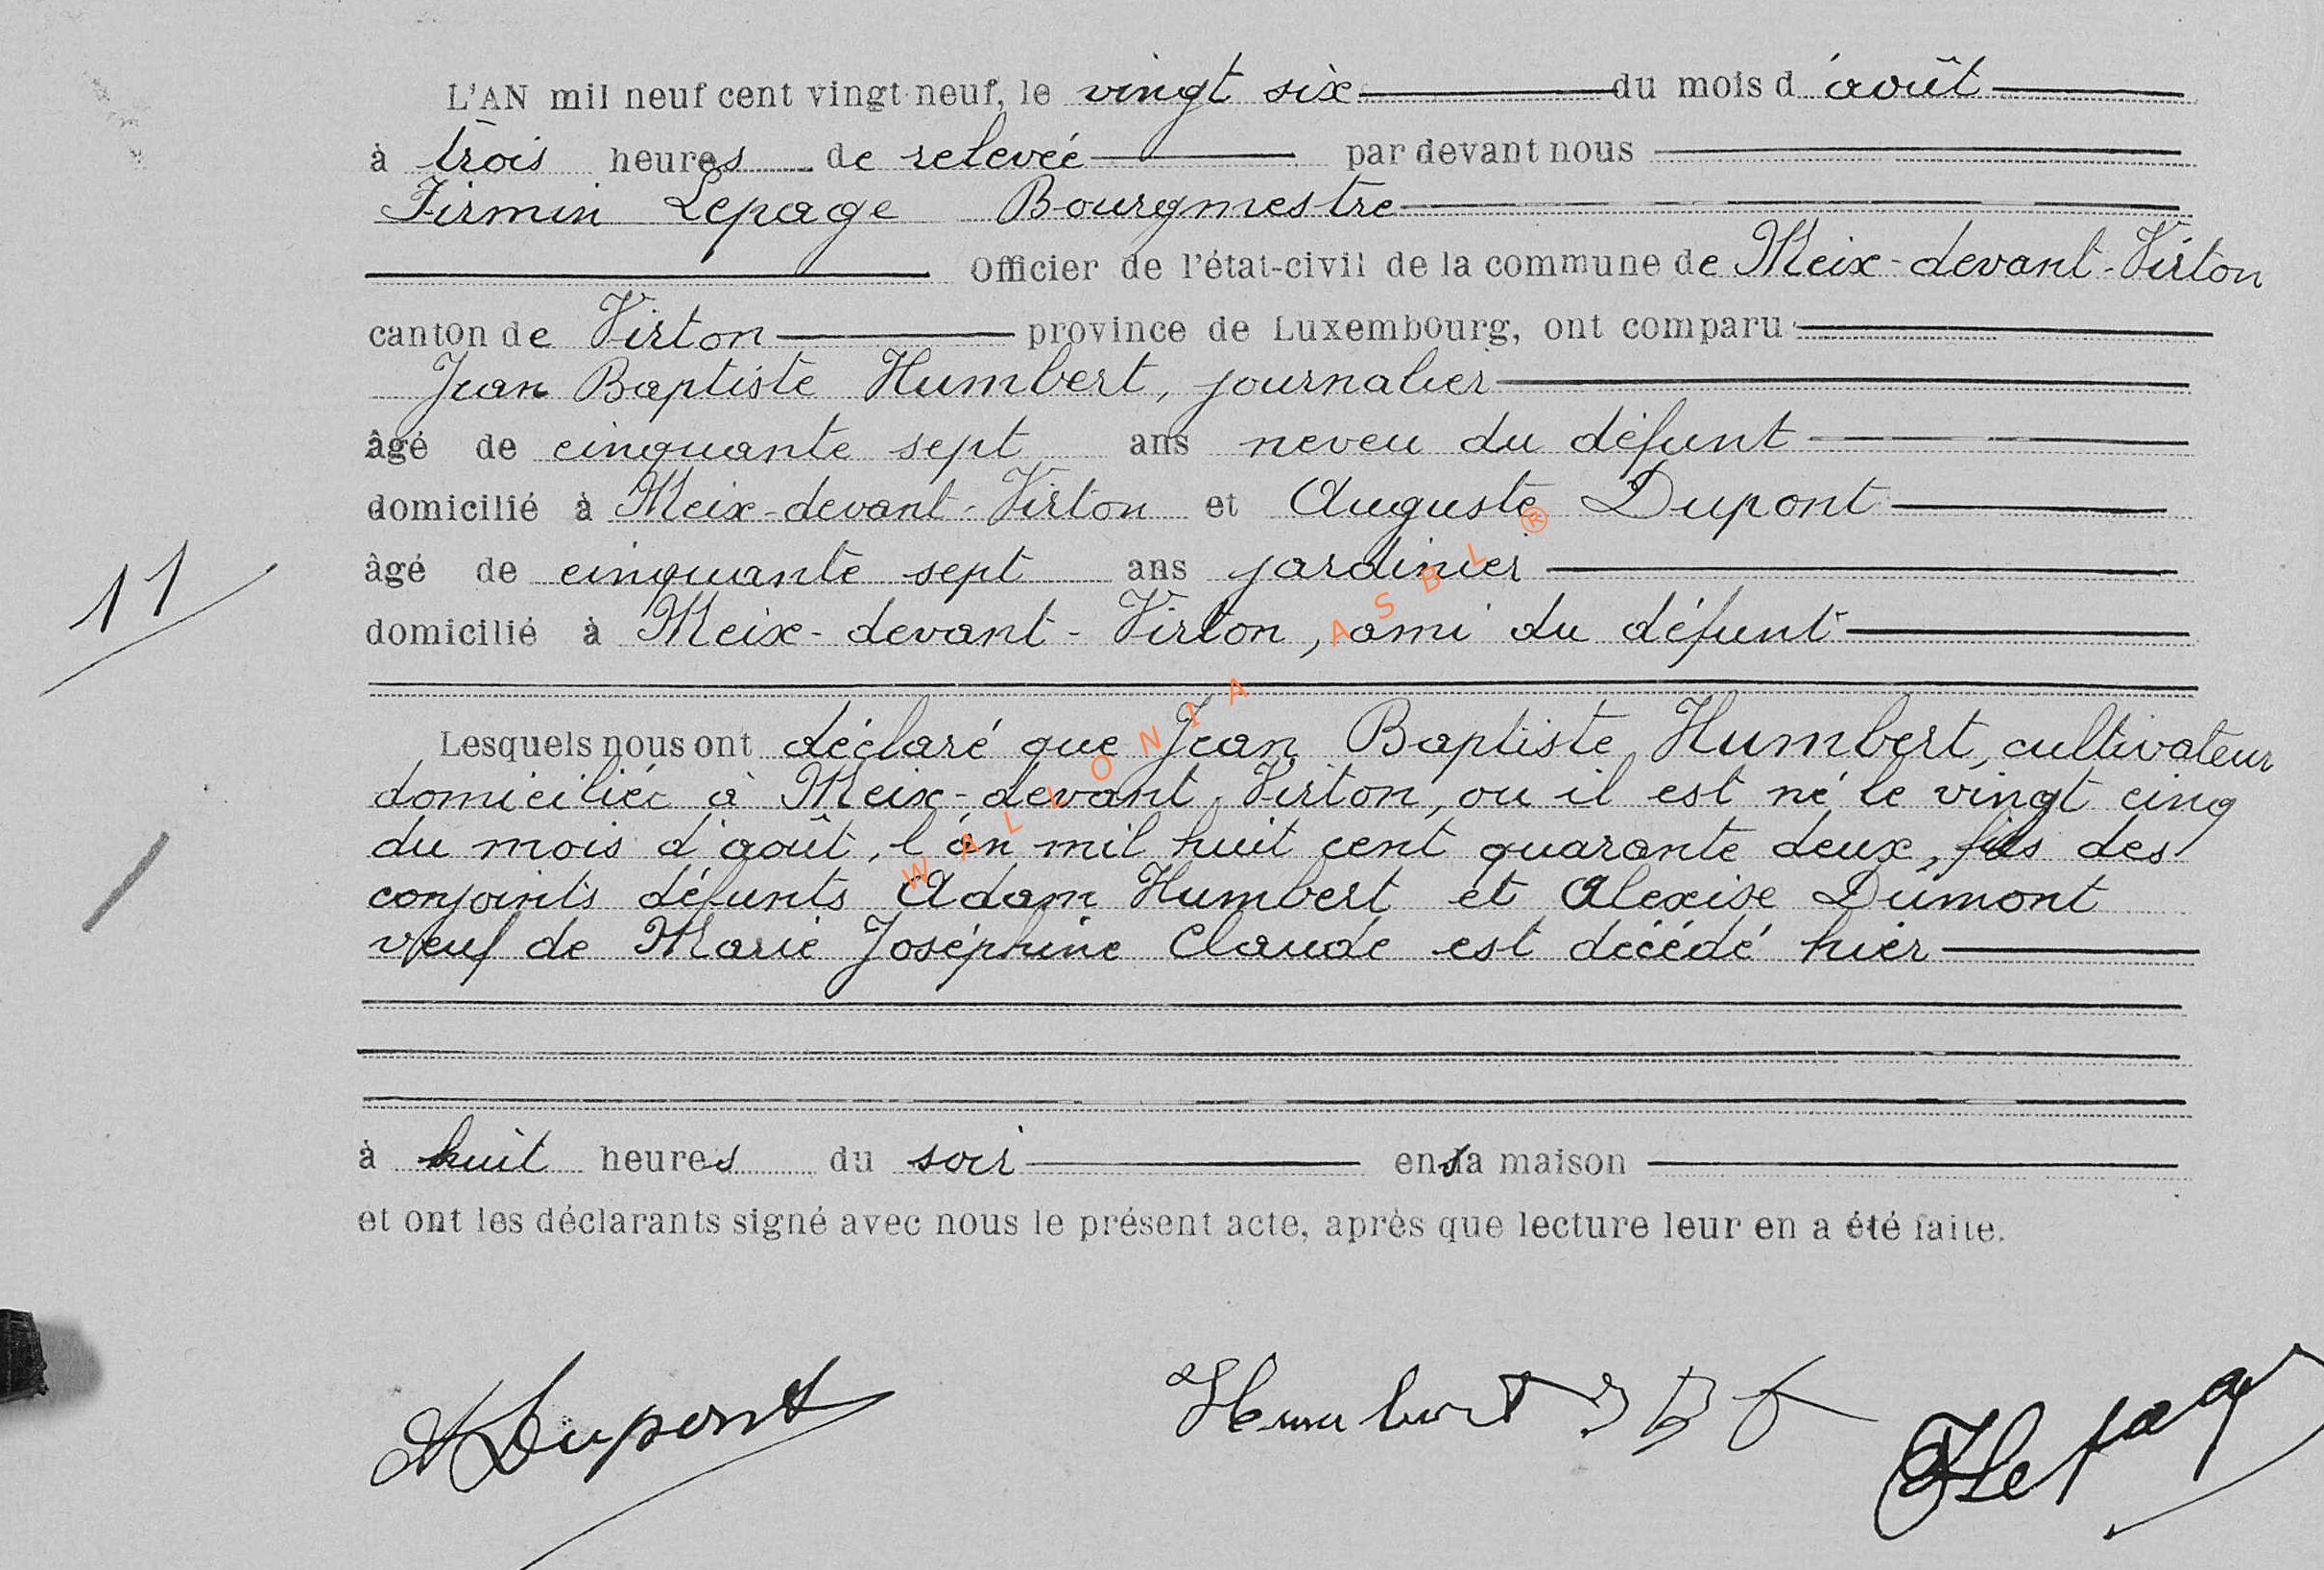 L'AN mil neuf cent vingt neuf, le vingt six du mois d'août
à trois heures de relevée par devant nous
Firmin Lepage Bourgmestre
Officier de l'état-civil de la commune de Meix-devant-Virton
canton de Virton province de Luxembourg, ont comparu
Jean Baptiste Humbert, journalier
âgé de cinquante sept ans neveu du défunt
domicilié à Meix-devant-Virton et Auguste Dupont
âgé de cinquante sept ans jardinier
11
domicilié à Meix-devant-Virton, ami du défunt
Lesquels nous ont déclaré que Jean Baptiste Humbert, cultivateur
domiciliéc à Meix-devant-Virton, ou il est né le vingt cinq
du mois d'août, l'an mil huit cent quarante deux, fils des
conjoints défunts Adam Humbert et Alexise Dumont
veuf de Marie Joséphine Claude est décédé hier
à huit heures du soir en sa maison
et ont les déclarants signé avec nous le présent acte, après que lecture leur en a été faite.
ADupont Humbert J B FLepage
WALLONIA ASBL ®